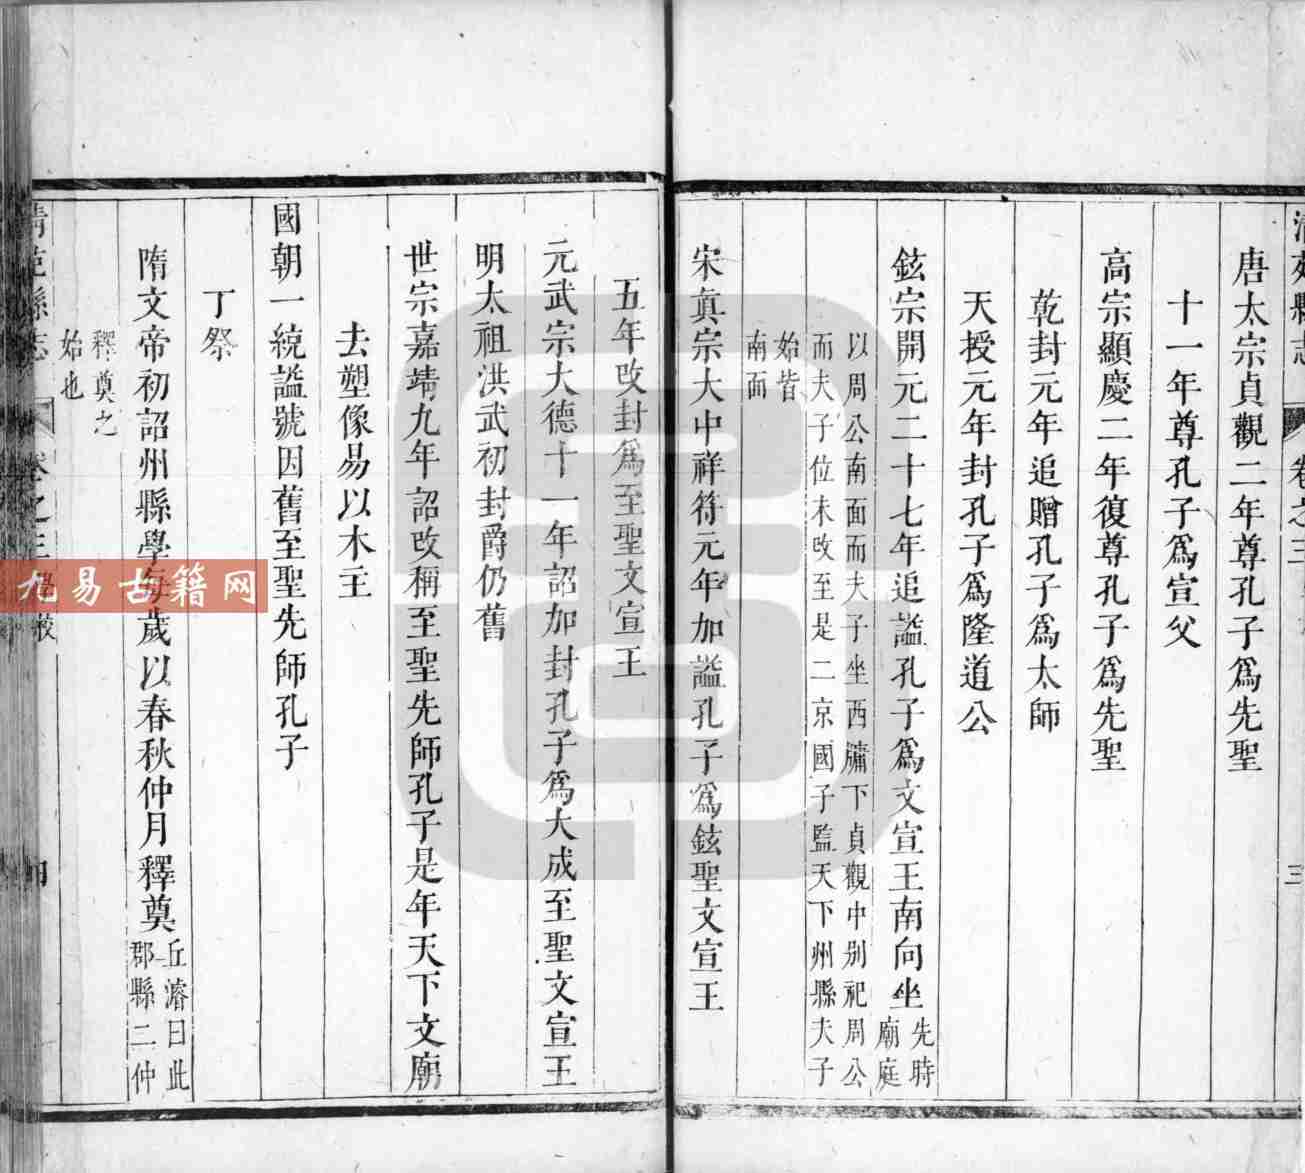 縣志 卷之三 三
唐太宗貞觀二年尊孔子爲先聖
十一年尊孔子爲宣父
高宗顯慶二年復尊孔子爲先聖
乾封元年追贈孔子爲太師
天授元年封孔子爲隆道公
鉉宗開元二十七年追謚孔子爲文宣王南向坐
先時
廟庭
以周公南面而夫子坐西牗下貞觀中别祀周公
而夫子位未改至是二京國子監天下州縣夫子
始皆
南面
宋真宗大中祥符元年加謚孔子爲鉉聖文宣王
五年改封爲至聖文宣王
元武宗大德十一年詔加封孔子爲大成至聖文宣王
明太祖洪武初封爵仍舊
世宗嘉靖九年詔改稱至聖先師孔子是年天下文廟
去塑像易以木主
國朝一統謚號因舊至聖先師孔子
丁祭
隋文帝初詔州縣學每歲以春秋仲月釋奠
丘濬曰此
郡縣二仲
釋奠之
始也
清苑縣志 卷之三 學校 四
九易古籍网